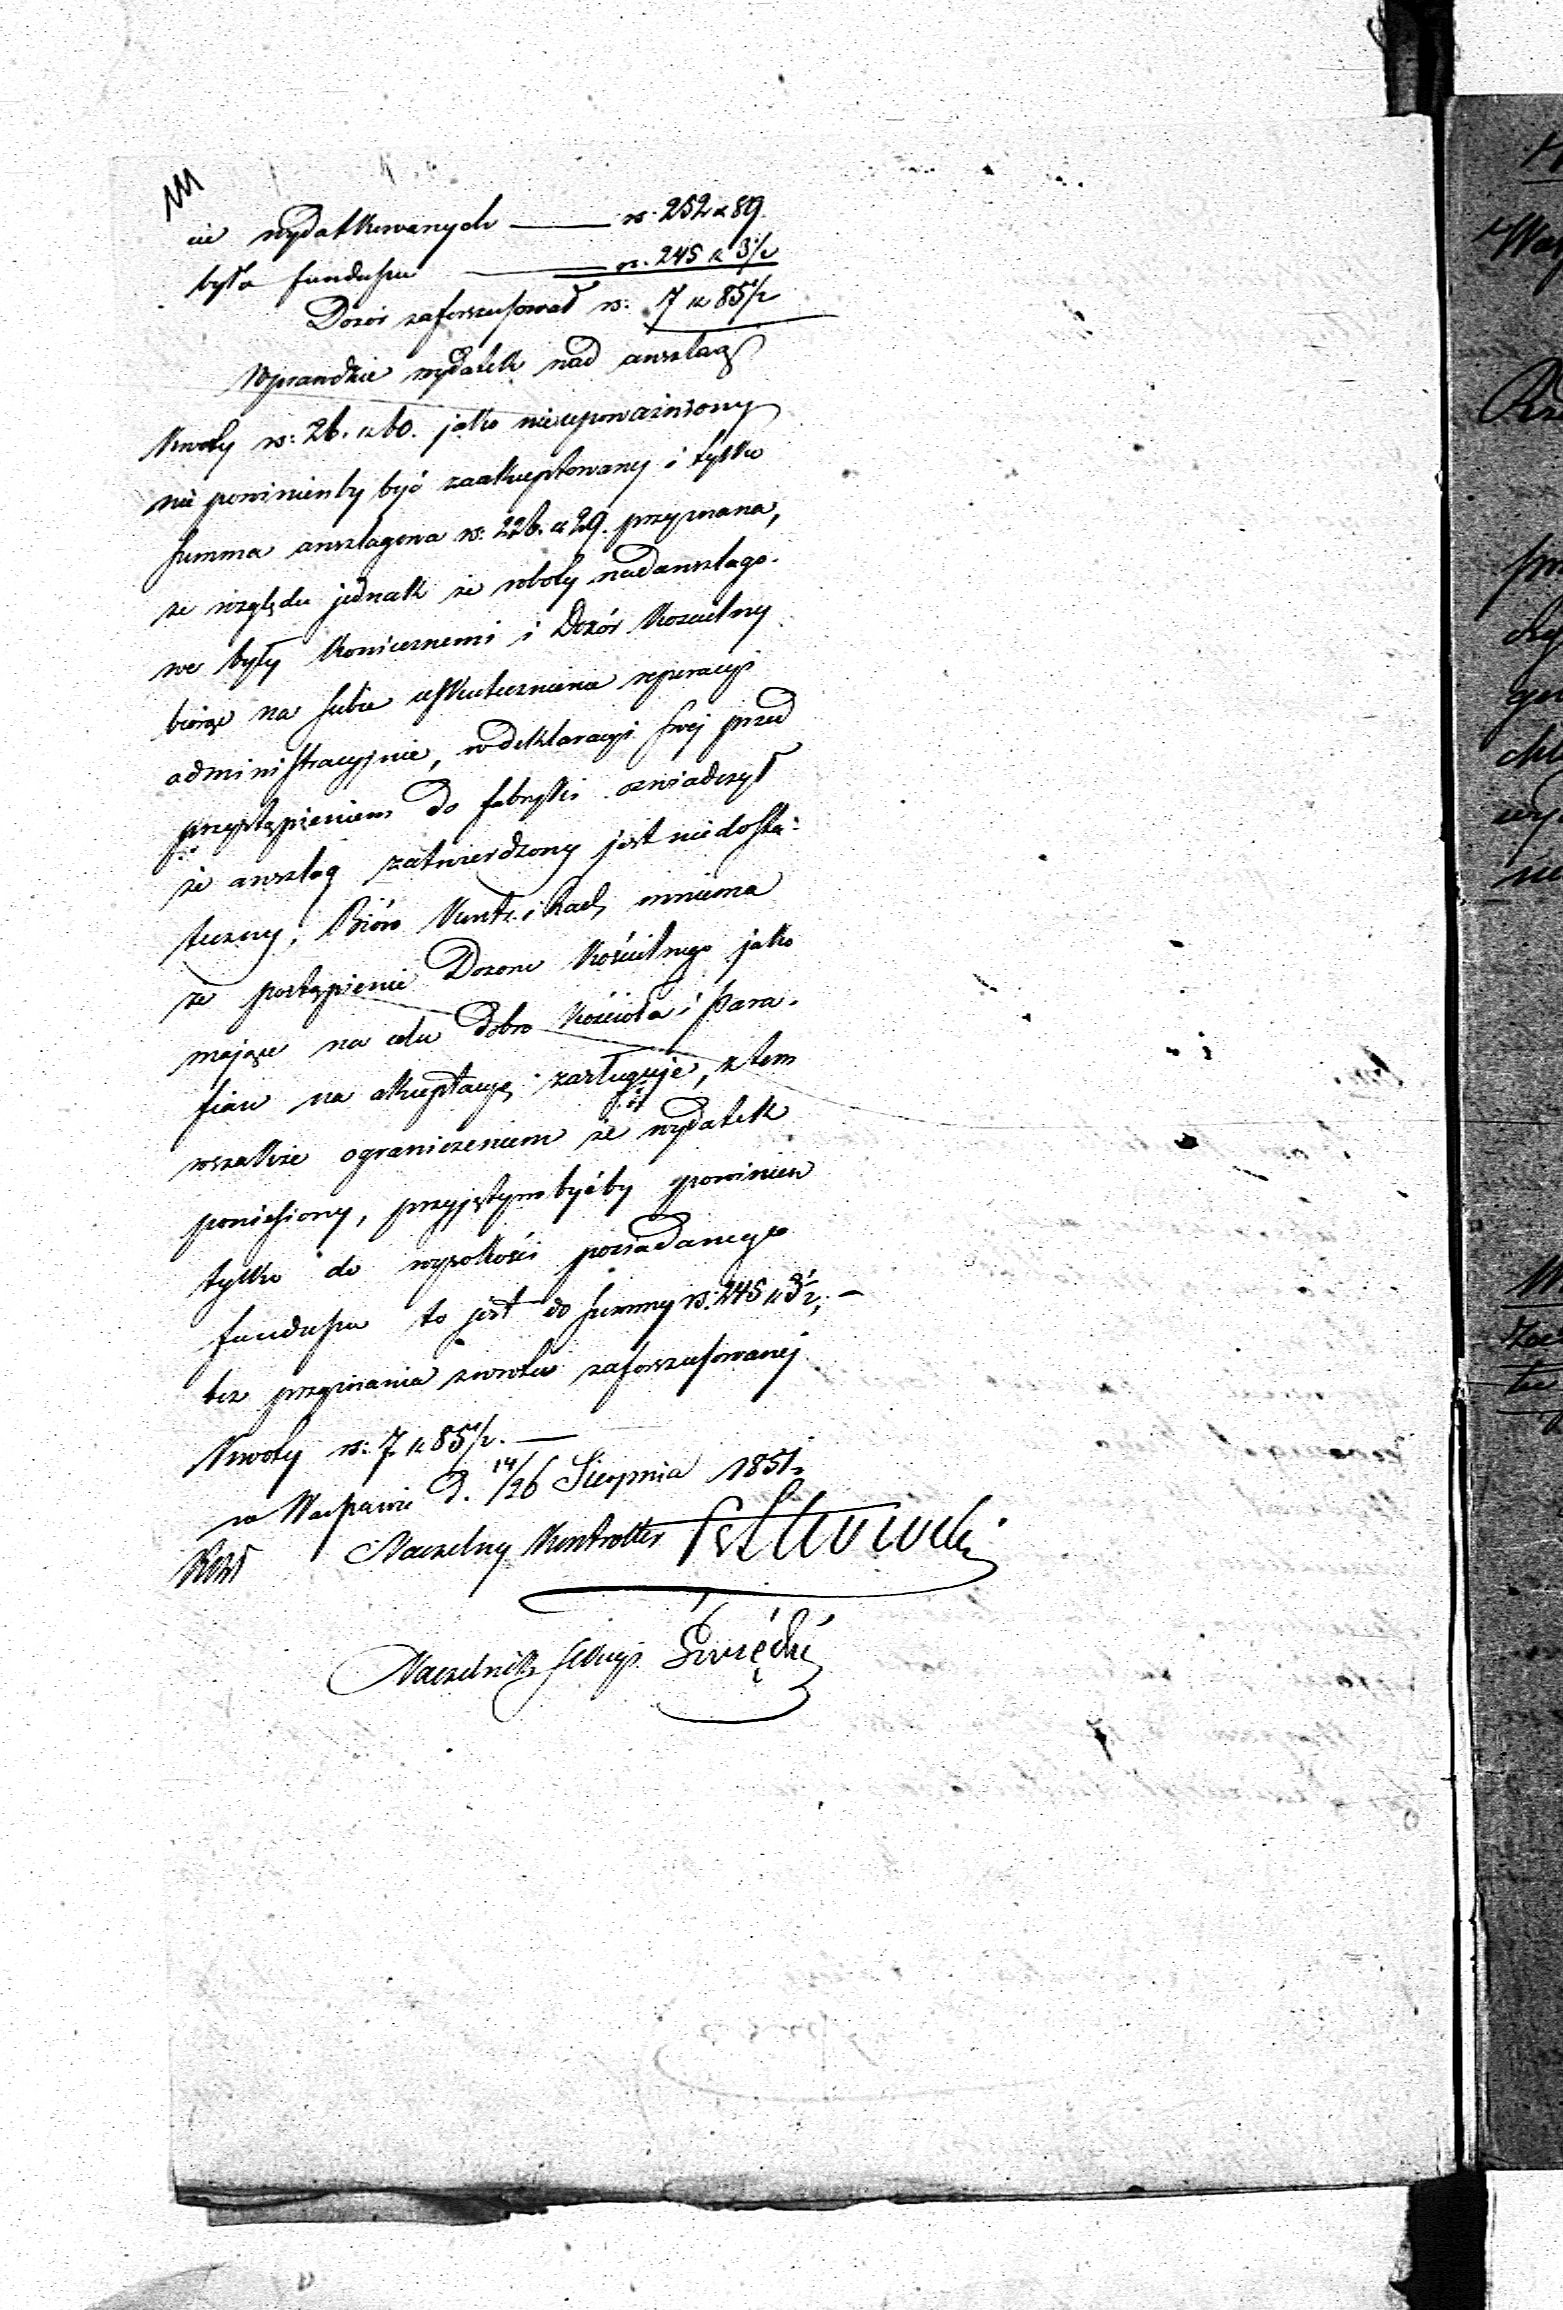 cie wydatkowanych — rs. 252 k 89.
było funduszu — rs. 245 k 3½
Dozór zaforszusował rs: 7 k 85½
Wprawdzie wydatek nad anszlag
kwoty rs: 26. k 60. jako nieupoważniony
nie powinienby być zaakceptowany i tylko
summa anszlagowa rs: 226. k 29. przyznana,
ze względu jednak że roboty nadanszlago-
we były koniecznemi i Dozór Kościelny
biorąc na siebie uskutecznienie reperacyi
administracyjnie, w deklaracyi swej przed
przystąpieniem do fabryki oświadczył
że anszlag zatwierdzony jest niedosta-
teczny, Bióro Kontr. i Rach. mniema
że postąpienie Dozoru Kościelnego jako
mające na celu dobro Kościoła i para-
fian na akceptacyę zasługuje, z tem
wszakże ograniczeniem że wydatek
poniesiony, przyjętym byćby powinien
tylko do wysokości posiadanego
funduszu to jest do summy rs: 245 k 3½, —
bez przyznania zwrotu zaforszusowanej
kwoty rs: 7 k 85½. —
w Warszawie d. 14/26 Sierpnia 1851 r.
Naczelny Kontroller
Naczelnik Sekcyi Święcki